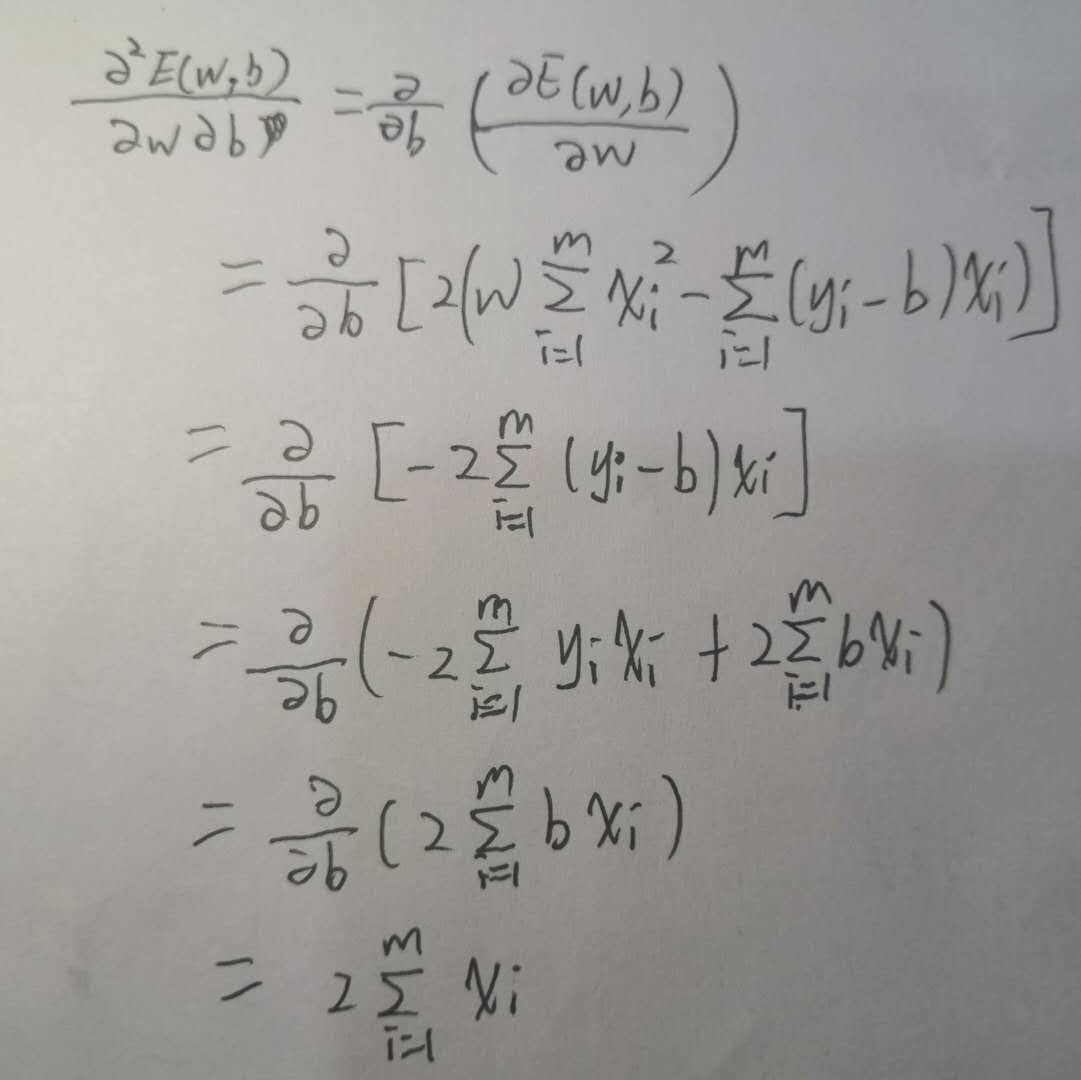 ∂²E(w,b)/∂w∂b = ∂/∂b (∂E(w,b)/∂w)
= ∂/∂b [2(w ∑_{i=1}^{m} x_i² - ∑_{i=1}^{m} (y_i - b)x_i)]
= ∂/∂b [-2∑_{i=1}^{m} (y_i - b)x_i]
= ∂/∂b (-2∑_{i=1}^{m} y_i x_i + 2∑_{i=1}^{m} bx_i)
= ∂/∂b (2∑_{i=1}^{m} bx_i)
= 2∑_{i=1}^{m} x_i